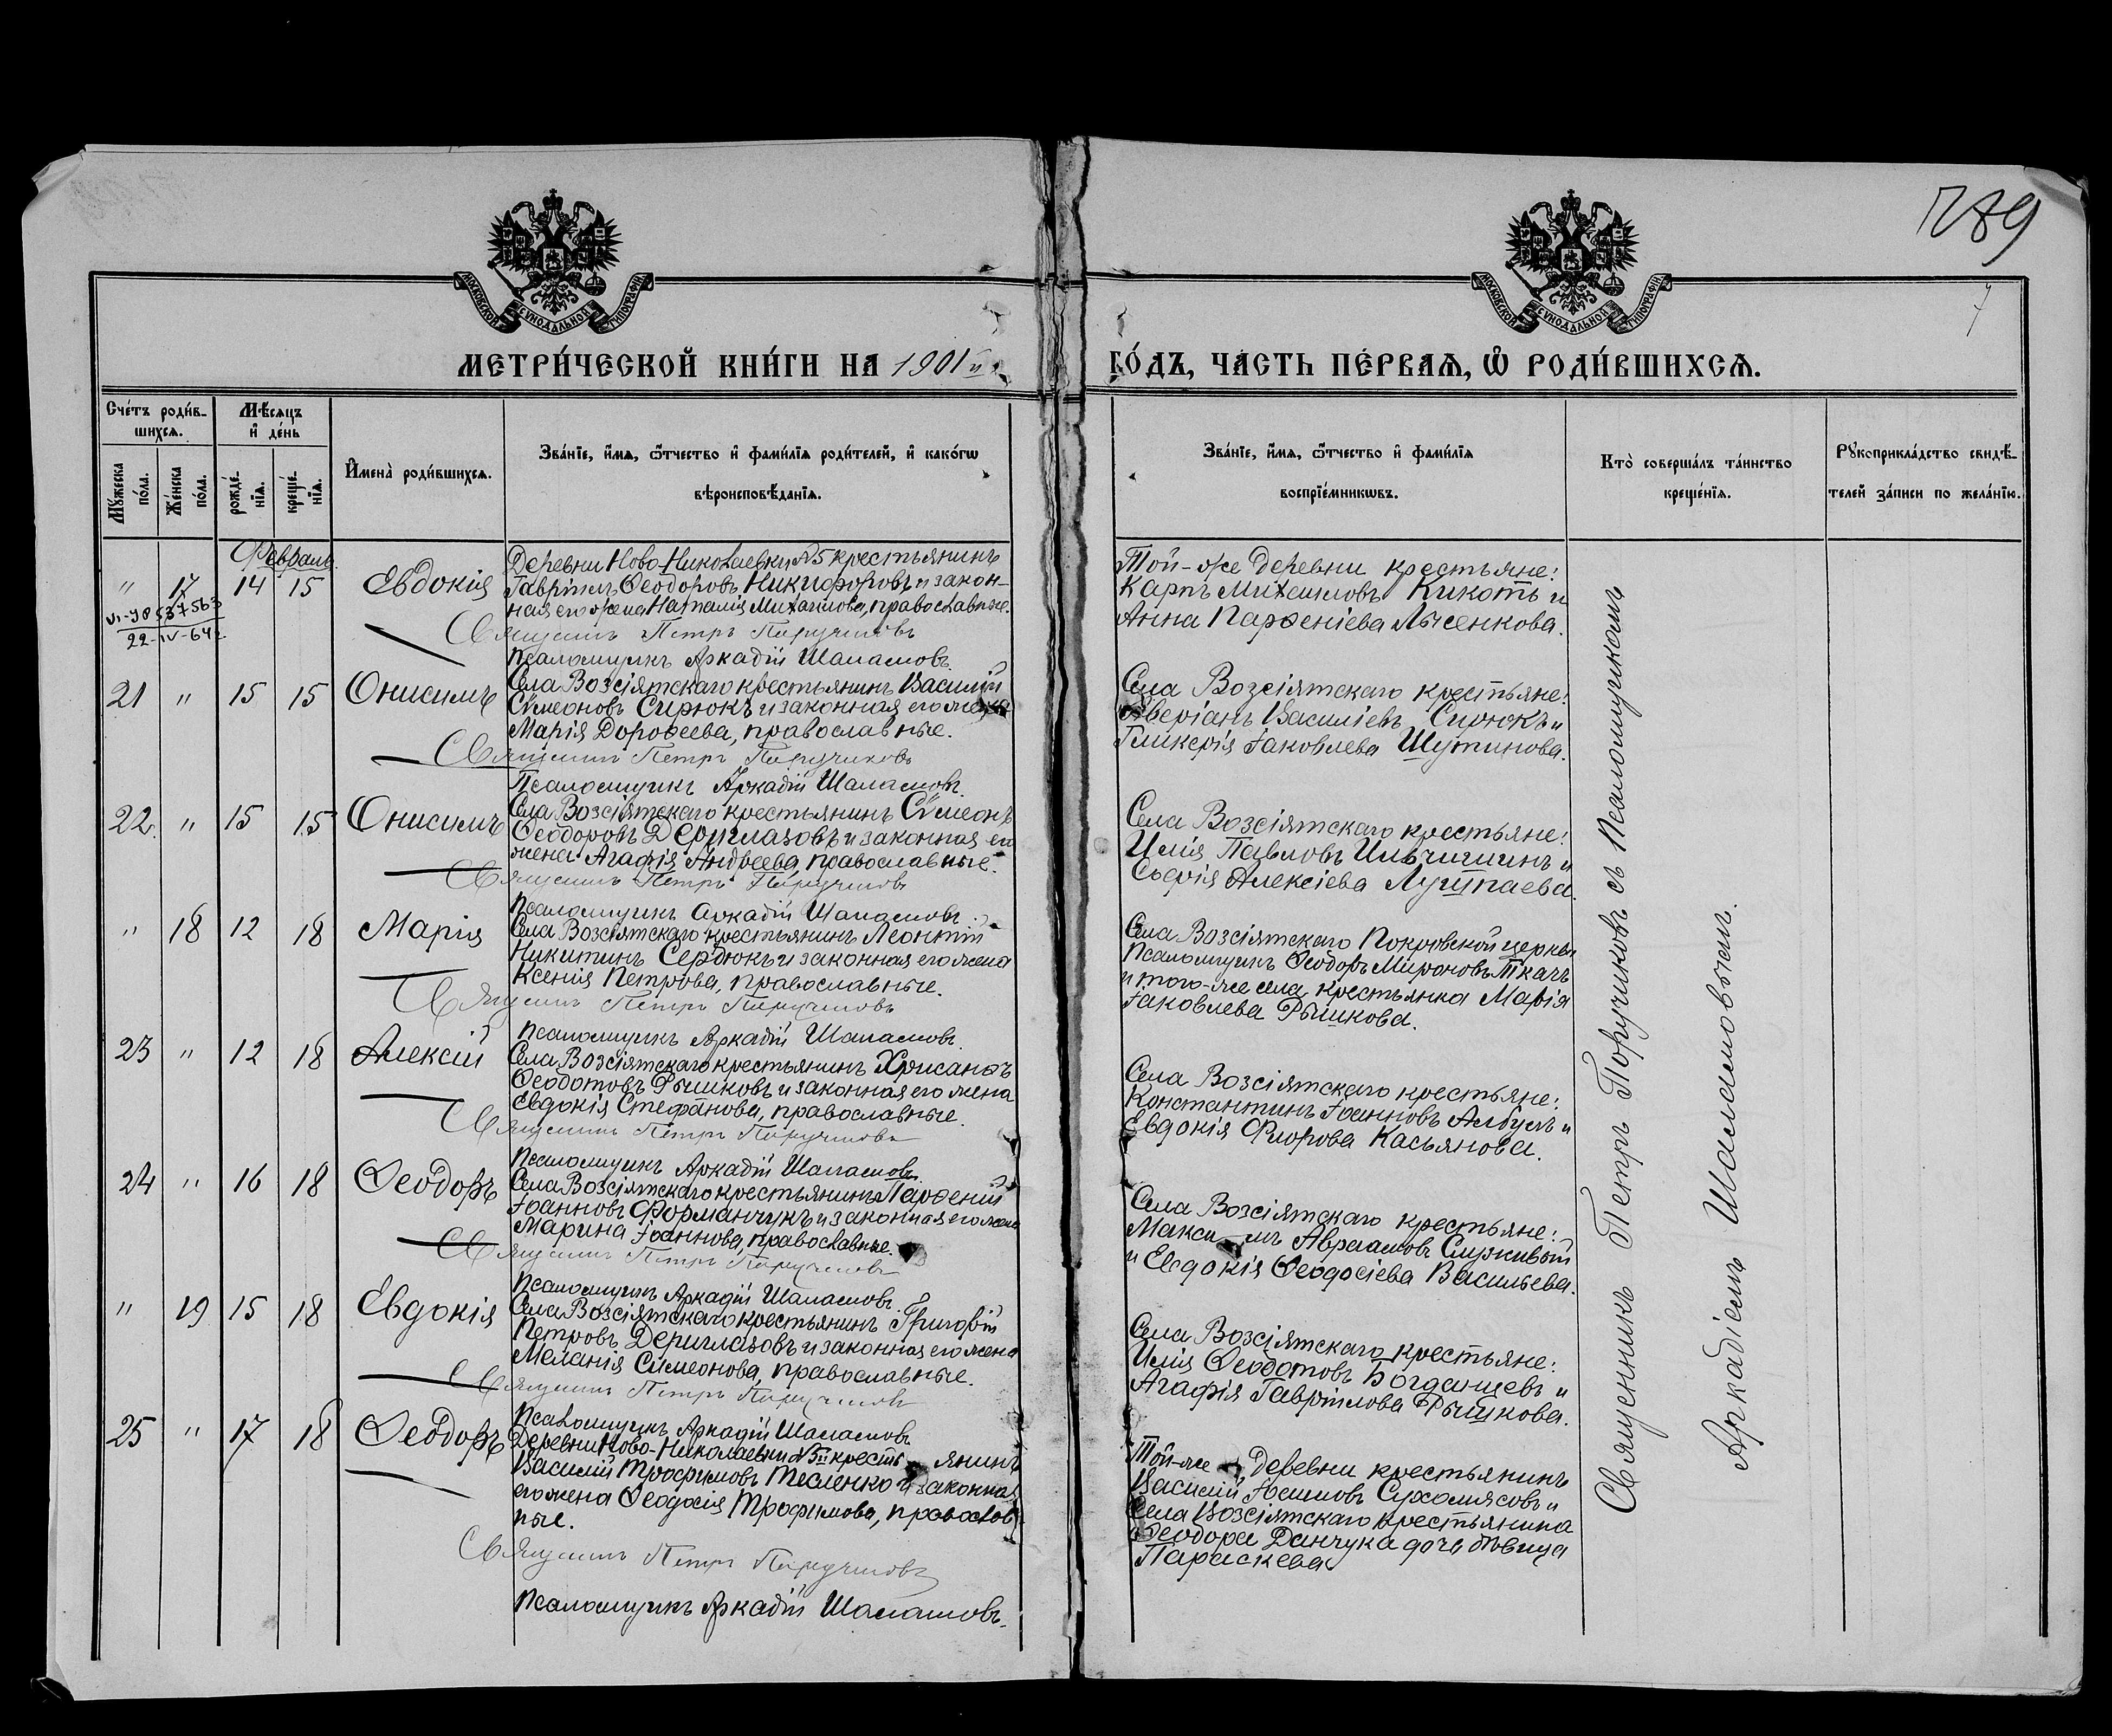 789
7
МОСКОВСКОЙ СѴНОДАЛЬНОЙ ТИПОГРАФІИ
МОСКОВСКОЙ СѴНОДАЛЬНОЙ ТИПОГРАФІИ
МЕТРИ́ЧЕСКОЙ КНИ́ГИ НА 1901й
ГО́ДЪ, ЧА́СТЬ ПЕ́РВАѦ, Ѿ РОДИ́ВШИХСѦ.
Сче́тъ роди́в-
шихсѧ.
Мѣ́сѧцъ
и҆ де́нь
Мꙋ́жеска
по́ла.
Же́нска
по́ла.
рожде́-
нїѧ.
креще́-
нїѧ.
И҆мена̀ роди́вшихсѧ.
Зва́нїе, и҆́мѧ, ѻ҆́тчество и҆ фамѝлїѧ роди́телей, и҆ како́гѡ
вѣроисповѣ́данїѧ.
Зва́нїе, и҆́мѧ, ѻ҆́тчество и҆ фами́лїѧ
воспрїе́мникѡвъ.
Кто̀ соверша́лъ та́инство
креще́нїѧ.
Рꙋкоприкла́дство свидѣ́-
телей за́писи по жела́нїю.
Февраль.
" 17 14 15 Евдокія
VI-ЯЯ 537563
22-IV-64г.
Деревни Ново-Николаевки №5 крестьянинъ
Гавріилъ Ѳеодоровъ Никифоровъ и закон-
ная его жена Наталія Михаилова, православные.
Священникъ Петръ Поручиковъ
Псаломщикъ Аркадій Шаламовъ.
Той-же деревни крестьяне:
Карпъ Михаиловъ Кикоть и
Анна Парѳеніева Лысенкова.
21 " 15 15 Онисимъ
Села Возсіятскаго крестьянинъ Василій
Сѵмеоновъ Сирюкъ и законная его жена
Марія Дороѳеева, православные.
Священникъ Петръ Поручиковъ
Псаломщикъ Аркадій Шаламовъ.
Села Возсіятскаго крестьяне:
Аверіанъ Василіевъ Сирюкъ и
Гликерія Іаковлева Шутинова.
22. " 15 15 Онисимъ
Села Возсіятскаго крестьянинъ Сѵмеонъ
Ѳеодоровъ Дериглазовъ и законная его
жена Агафія Андреева, православные.
Священникъ Петръ Поручиковъ
Псаломщикъ Аркадій Шаламовъ.
Села Возсіятскаго крестьяне:
Илія Павловъ Ильчишинъ и
Софія Алексіева Лушпаева.
" 18 12 18 Марія
Села Возсіятскаго крестьянинъ Леонтій
Никитинъ Сердюкъ и законная его жена
Ксенія Петрова, православные.
Священникъ Петръ Поручиковъ
Псаломщикъ Аркадій Шаламовъ.
Села Возсіятскаго Покровской церкви
Псаломщикъ Ѳеодоръ Мироновъ Ткачъ
и того-же села крестьянка Марія
Іаковлева Рышкова.
23 " 12 18 Алексій
Села Возсіятскаго крестьянинъ Хрисанѳъ
Ѳеодотовъ Рышковъ и законная его жена
Евдокія Стефанова, православные.
Священникъ Петръ Поручиковъ
Псаломщикъ Аркадій Шаламовъ.
Села Возсіятскаго крестьяне:
Константинъ Іоанновъ Албулъ и
Евдокія Флорова Касьянова.
24 " 16 18 Ѳеодоръ
Села Возсіятскаго крестьянинъ Парѳеній
Іоанновъ Форманчукъ и законная его жена
Марина Іоаннова, православные.
Священникъ Петръ Поручиковъ
Псаломщикъ Аркадій Шаламовъ.
Села Возсіятскаго крестьяне:
Максимъ Авраамовъ Служивый
и Евдокія Ѳеодосіева Васильева.
" 19 15 18 Евдокія
Села Возсіятскаго крестьянинъ Григорій
Петровъ Дериглазовъ и законная его жена
Меланія Сѵмеонова, православные.
Священникъ Петръ Поручиковъ
Псаломщикъ Аркадій Шаламовъ
Села Возсіятскаго крестьяне:
Илія Ѳеодотовъ Богданцевъ и
Агафія Гавріилова Рышкова.
25 " 17 18 Ѳеодоръ
Деревни Ново-Николаевки крестьянинъ
Василій Трофимовъ Тесленко и законная
его жена Ѳеодосія Трофимова, православ-
ные.
Священникъ Петръ Поручиковъ
Псаломщикъ Аркадій Шаламовъ.
Той-же деревни крестьянинъ
Василій Сухомясовъ и
Села Возсіятскаго крестьянина
Ѳеодора Данчука дочь дѣвица
Параскева
Священникъ Петръ Поручиковъ съ Псаломщикомъ
Аркадіемъ Шаламовымъ.